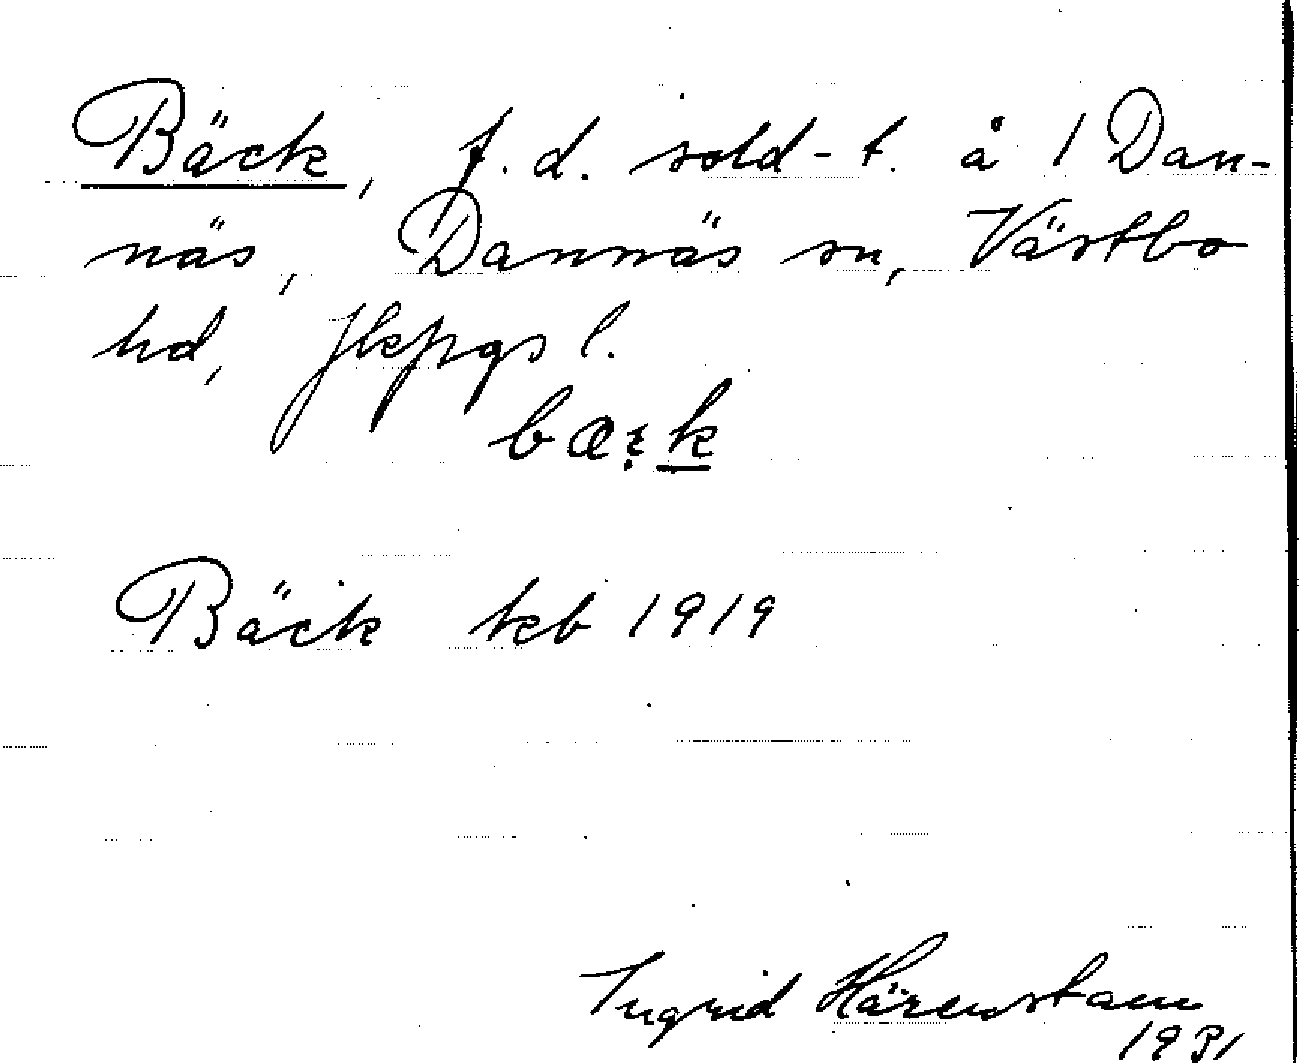 Bäck, f.d. sold-t. å 1 Dan-
näs, Dannäs sn, Västbo
hd, Jkpgs l.
bæ:k
Bäck kb 1919
Ingrid Härenstam
1931